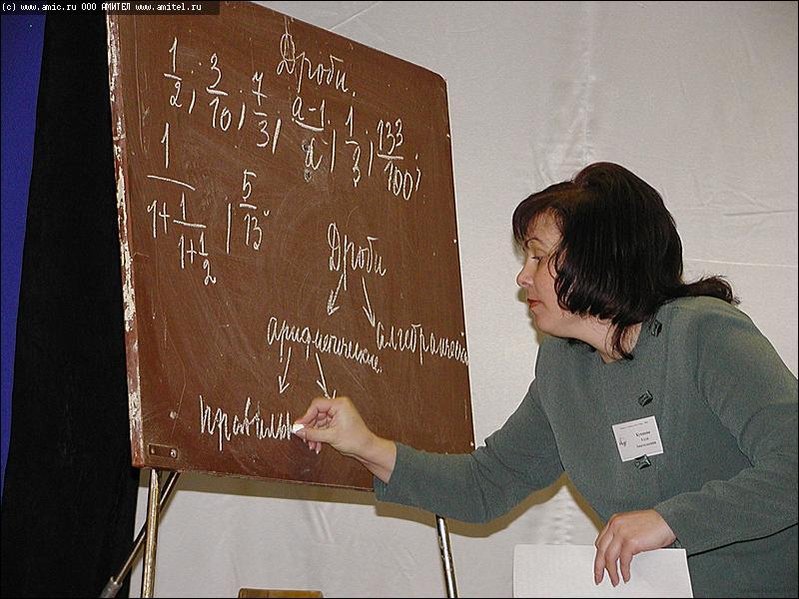 (c) www.amic.ru ООО АМИТЕЛ www.amitel.ru
Дроби.
1/2; 3/10; 7/3; a-1/a; 1/3; 133/100;
1/(1+1/(1+1/2)) ; 5/13
Дроби
арифметические. алгебраические
правильн